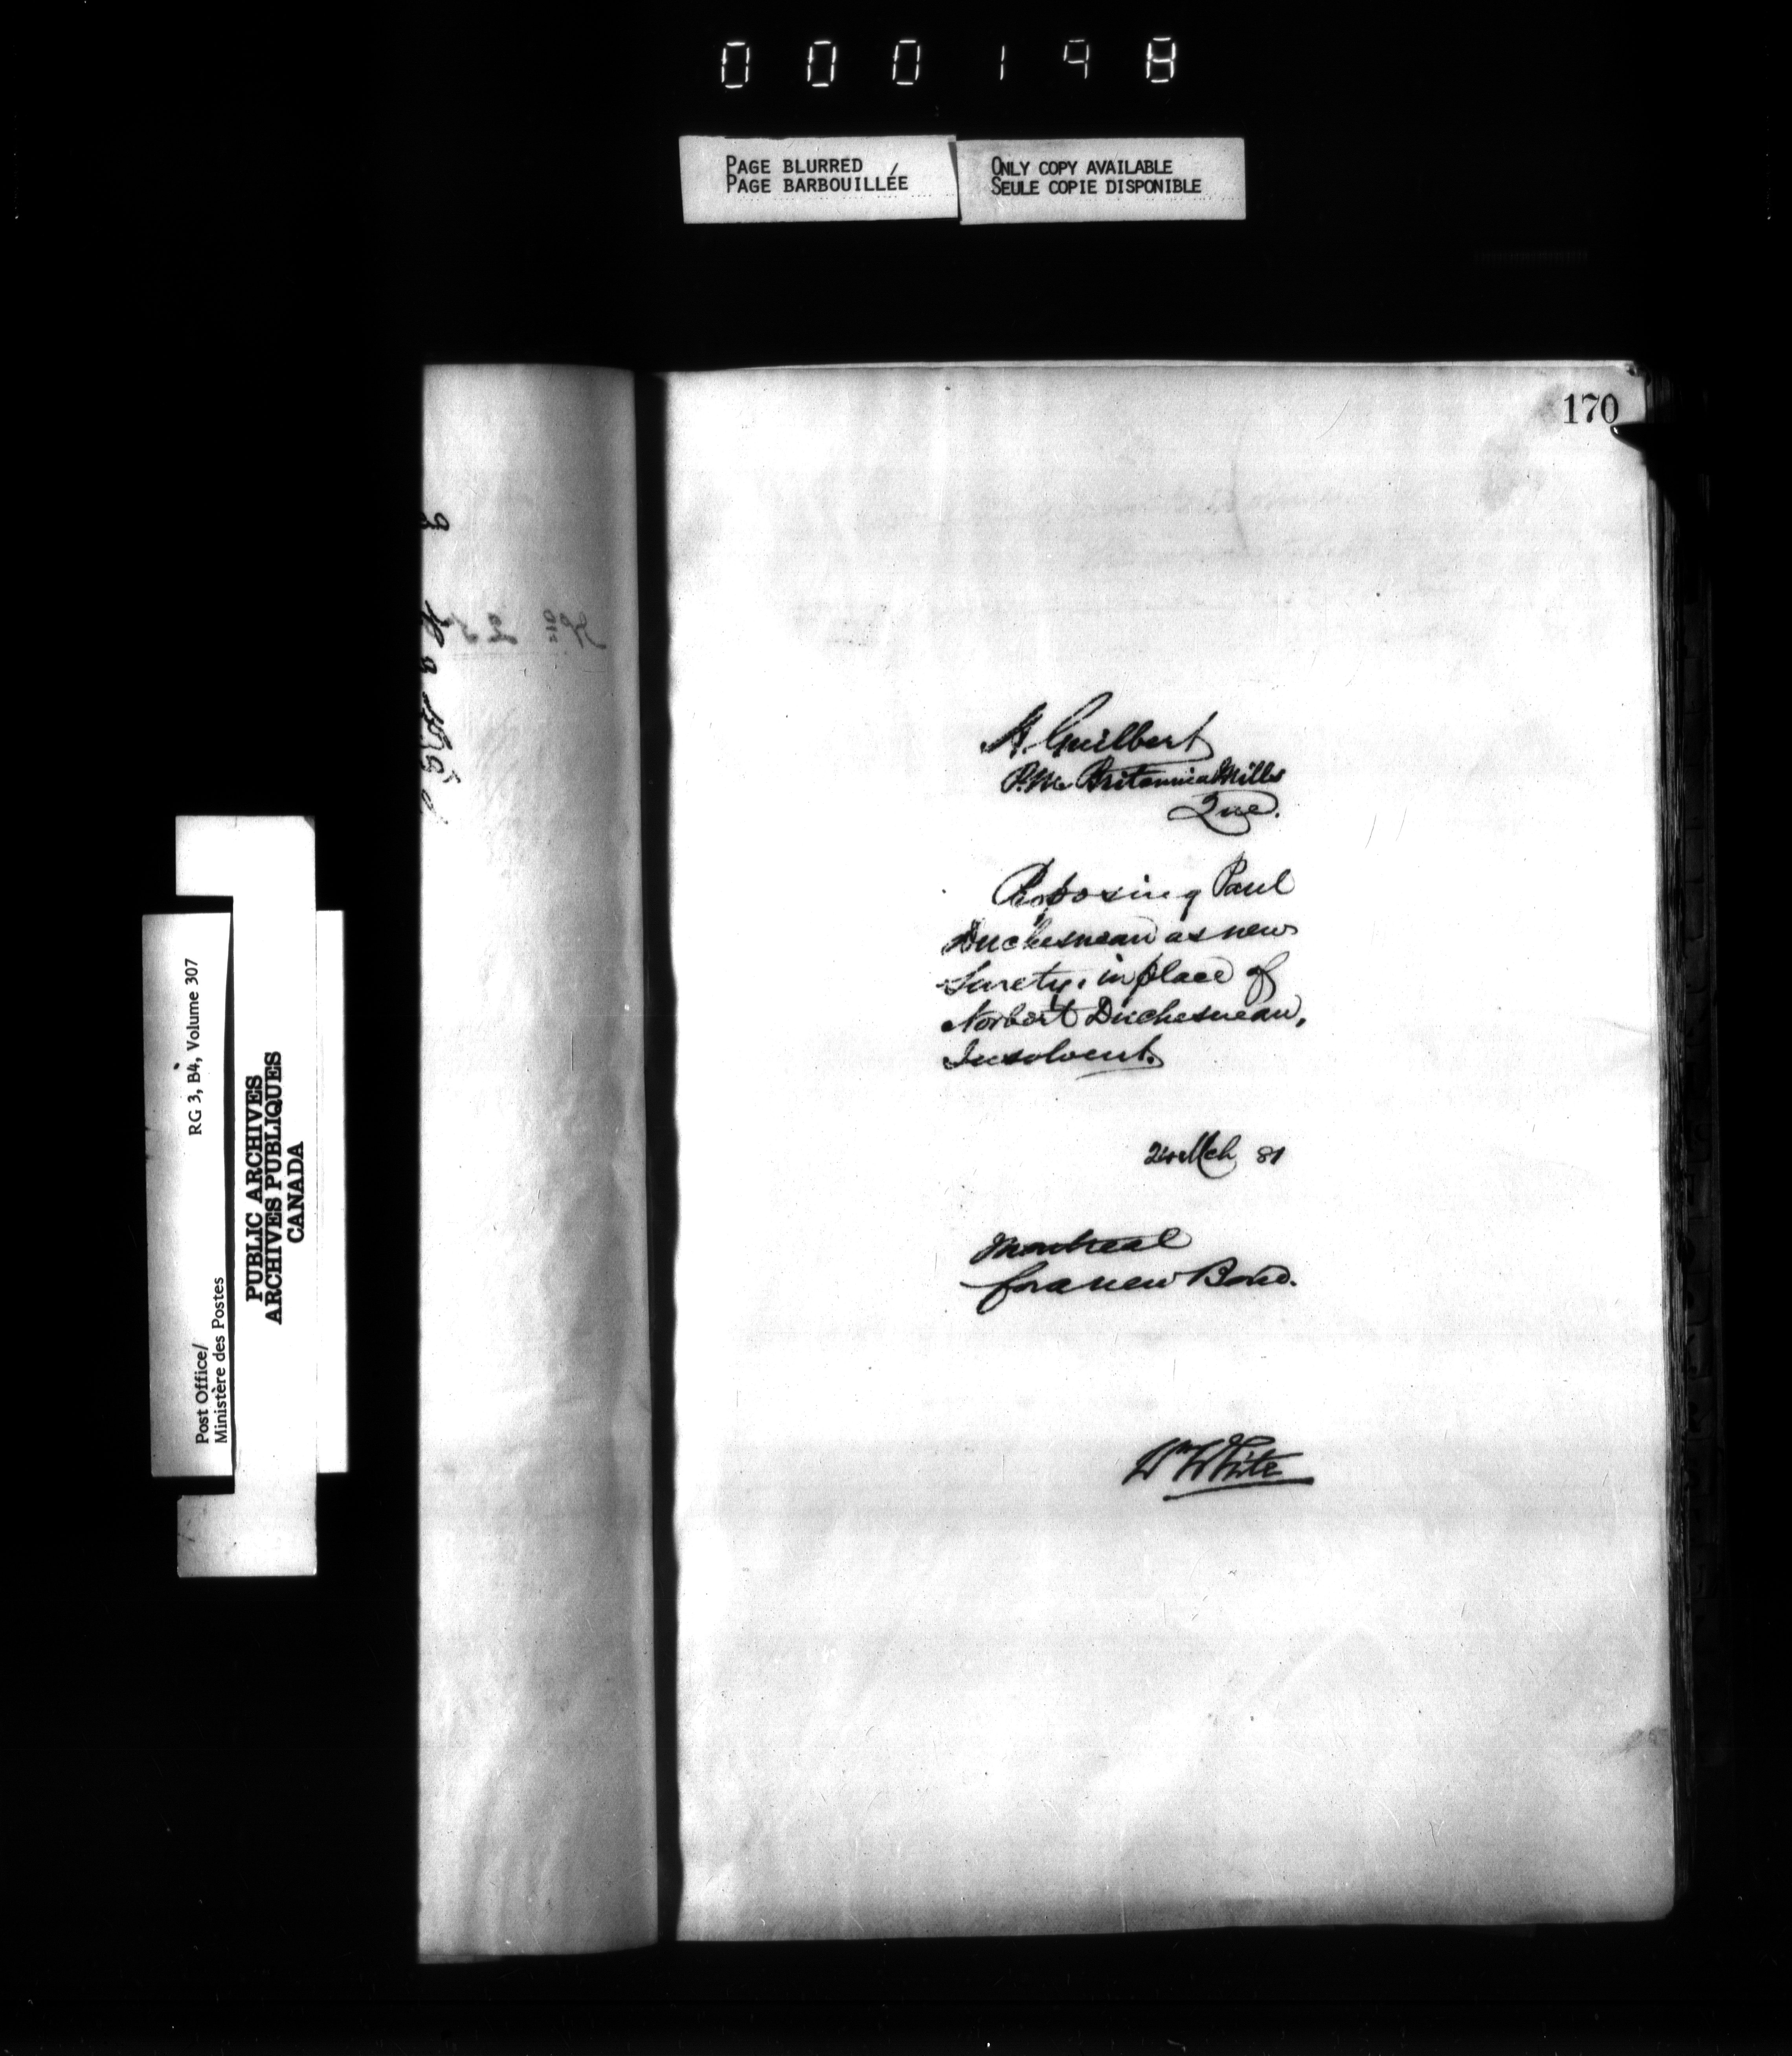 000198
PAGE BLURRED
PAGE BARBOUILLÉE
ONLY COPY AVAILABLE
SEULE COPIE DISPONIBLE
170
Guilbert
P.M. Britannia Mills
Que.
Proposing Paul
Duchesneau as new
Surety, in place of
Norbert Duchesneau,
Insolvent.
Mch 81
Montreal
for a new Bond.
Wm White
Post Office/
Ministère des Postes
RG 3, B4, Volume 307
PUBLIC ARCHIVES
ARCHIVES PUBLIQUES
CANADA